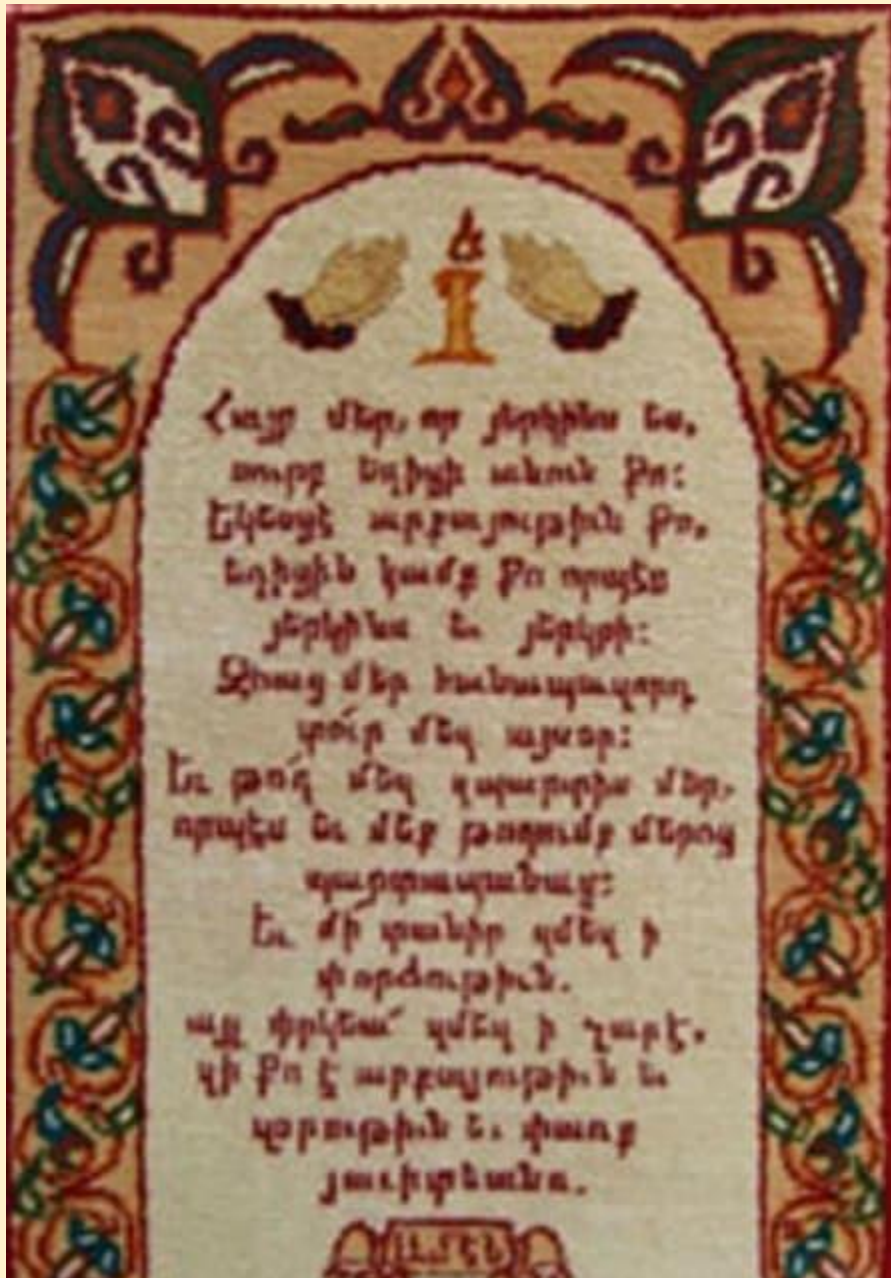 Հայր մեր, որ յերկինս ես,
սուրբ եղիցի անուն Քո:
Եկեսցէ արքայութիւն Քո,
եղիցին կամք Քո որպէս
յերկինս եւ յերկրի:
Զհաց մեր հանապազորդ
տո՛ւր մեզ այսօր:
Եւ թո՛ղ մեզ զպարտիս մեր,
որպէս եւ մեք թողումք մերոց
պարտապանաց:
Եւ մի՛ տանիր զմեզ ի
փորձութիւն.
այլ փրկեա՛ զմեզ ի չարէ,
զի Քո է արքայութիւն եւ
զօրութիւն եւ փառք
յաւիտեանս.
ԱՄԷՆ